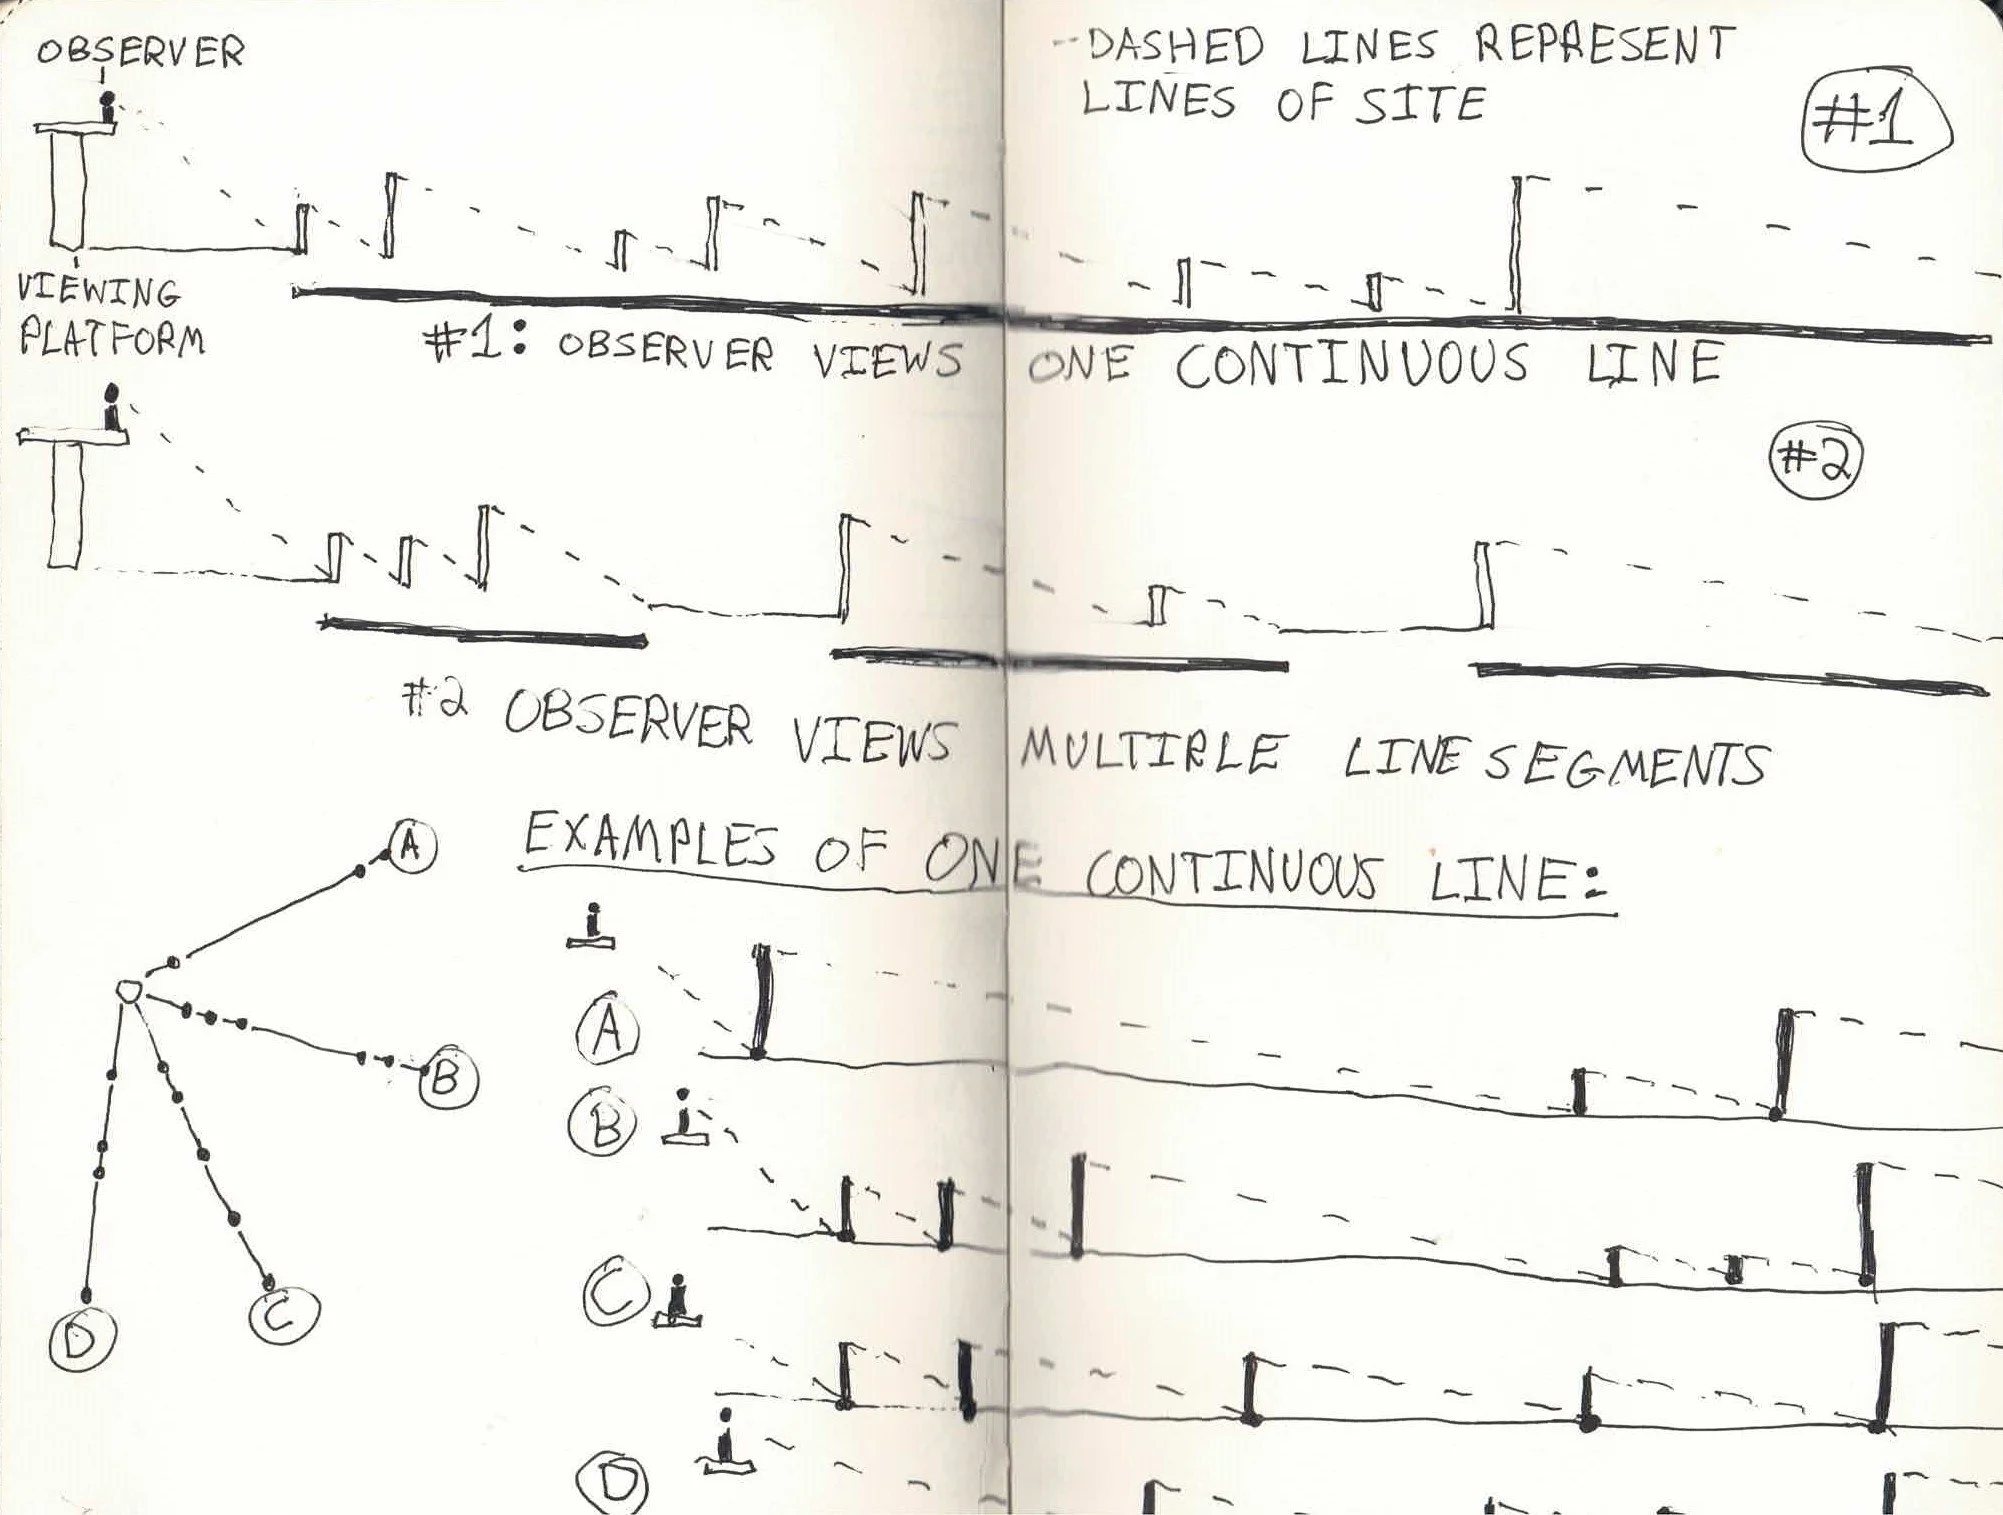 OBSERVER
--DASHED LINES REPRESENT
LINES OF SITE
#1
VIEWING
PLATFORM
#1: OBSERVER VIEWS ONE CONTINUOUS LINE
#2
#2 OBSERVER VIEWS MULTIPLE LINE SEGMENTS
EXAMPLES OF ONE CONTINUOUS LINE:
A
B
C
D
A
B
C
D